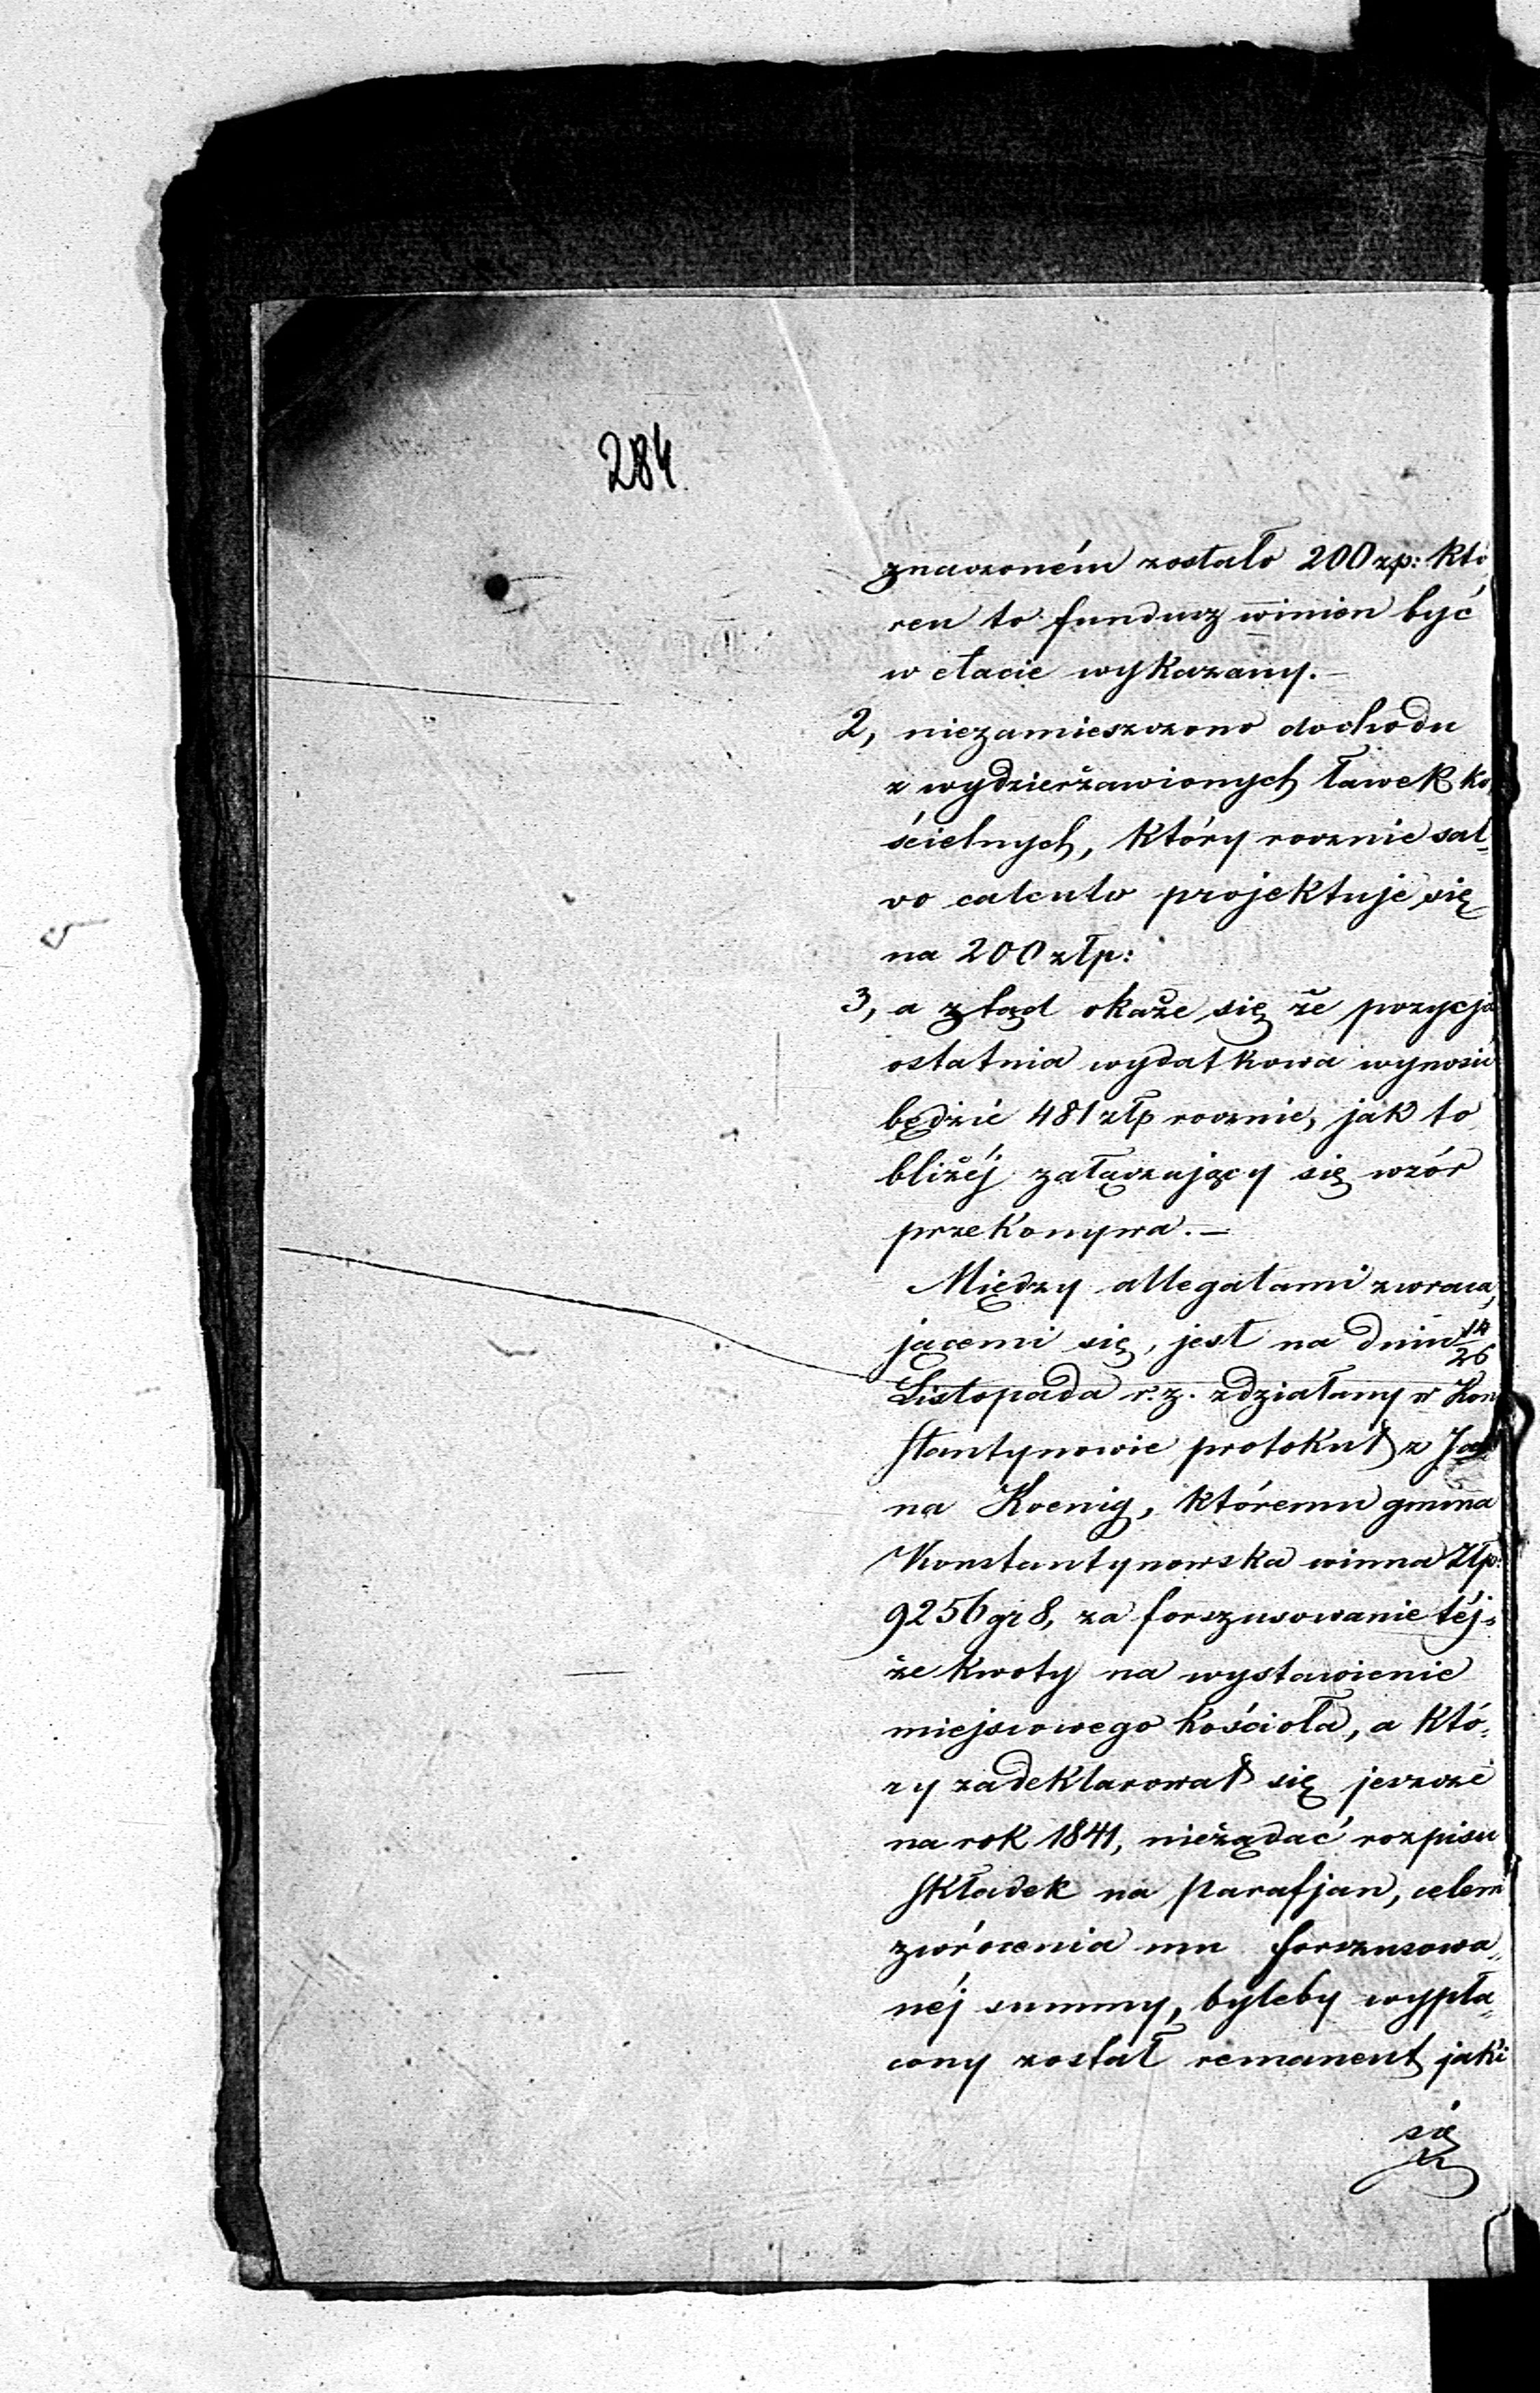 284
znaczoném zostało 200 zp: któ
ren to fundusz winien być
w etacie wykazany. —
2, niezamieszczono dochodu
z wydzierżawionych ławek ko
ścielnych, który rocznie sal-
vo calculo projektuje się
na 200 złp:
3, a ztąd okaże się że pozycja
ostatnia wydatkowa wynosić
będzie 481 złp rocznie, jak to
bliżéj załączający się wzór
przekonywa. —
Między allegatami zwraca„
jącemi się, jest na dniu 14/26
Listopada r. z. zdziałany w Kon
stantynowie protokuł z Ja
na Koenig, któremu gmina
Konstantynowska winna Złp:
9256 gr 8, za forszusowanie téj-
że kwoty na wystawienie
miejscowego kościoła, a któ-
ry zadeklarował się jeszcze
na rok 1841, nieżądać rozpisu
składek na parafjan, celem
zwrócenia mu forszusowa„
néj summy, byleby wypła„
cony został remanent jaki
się